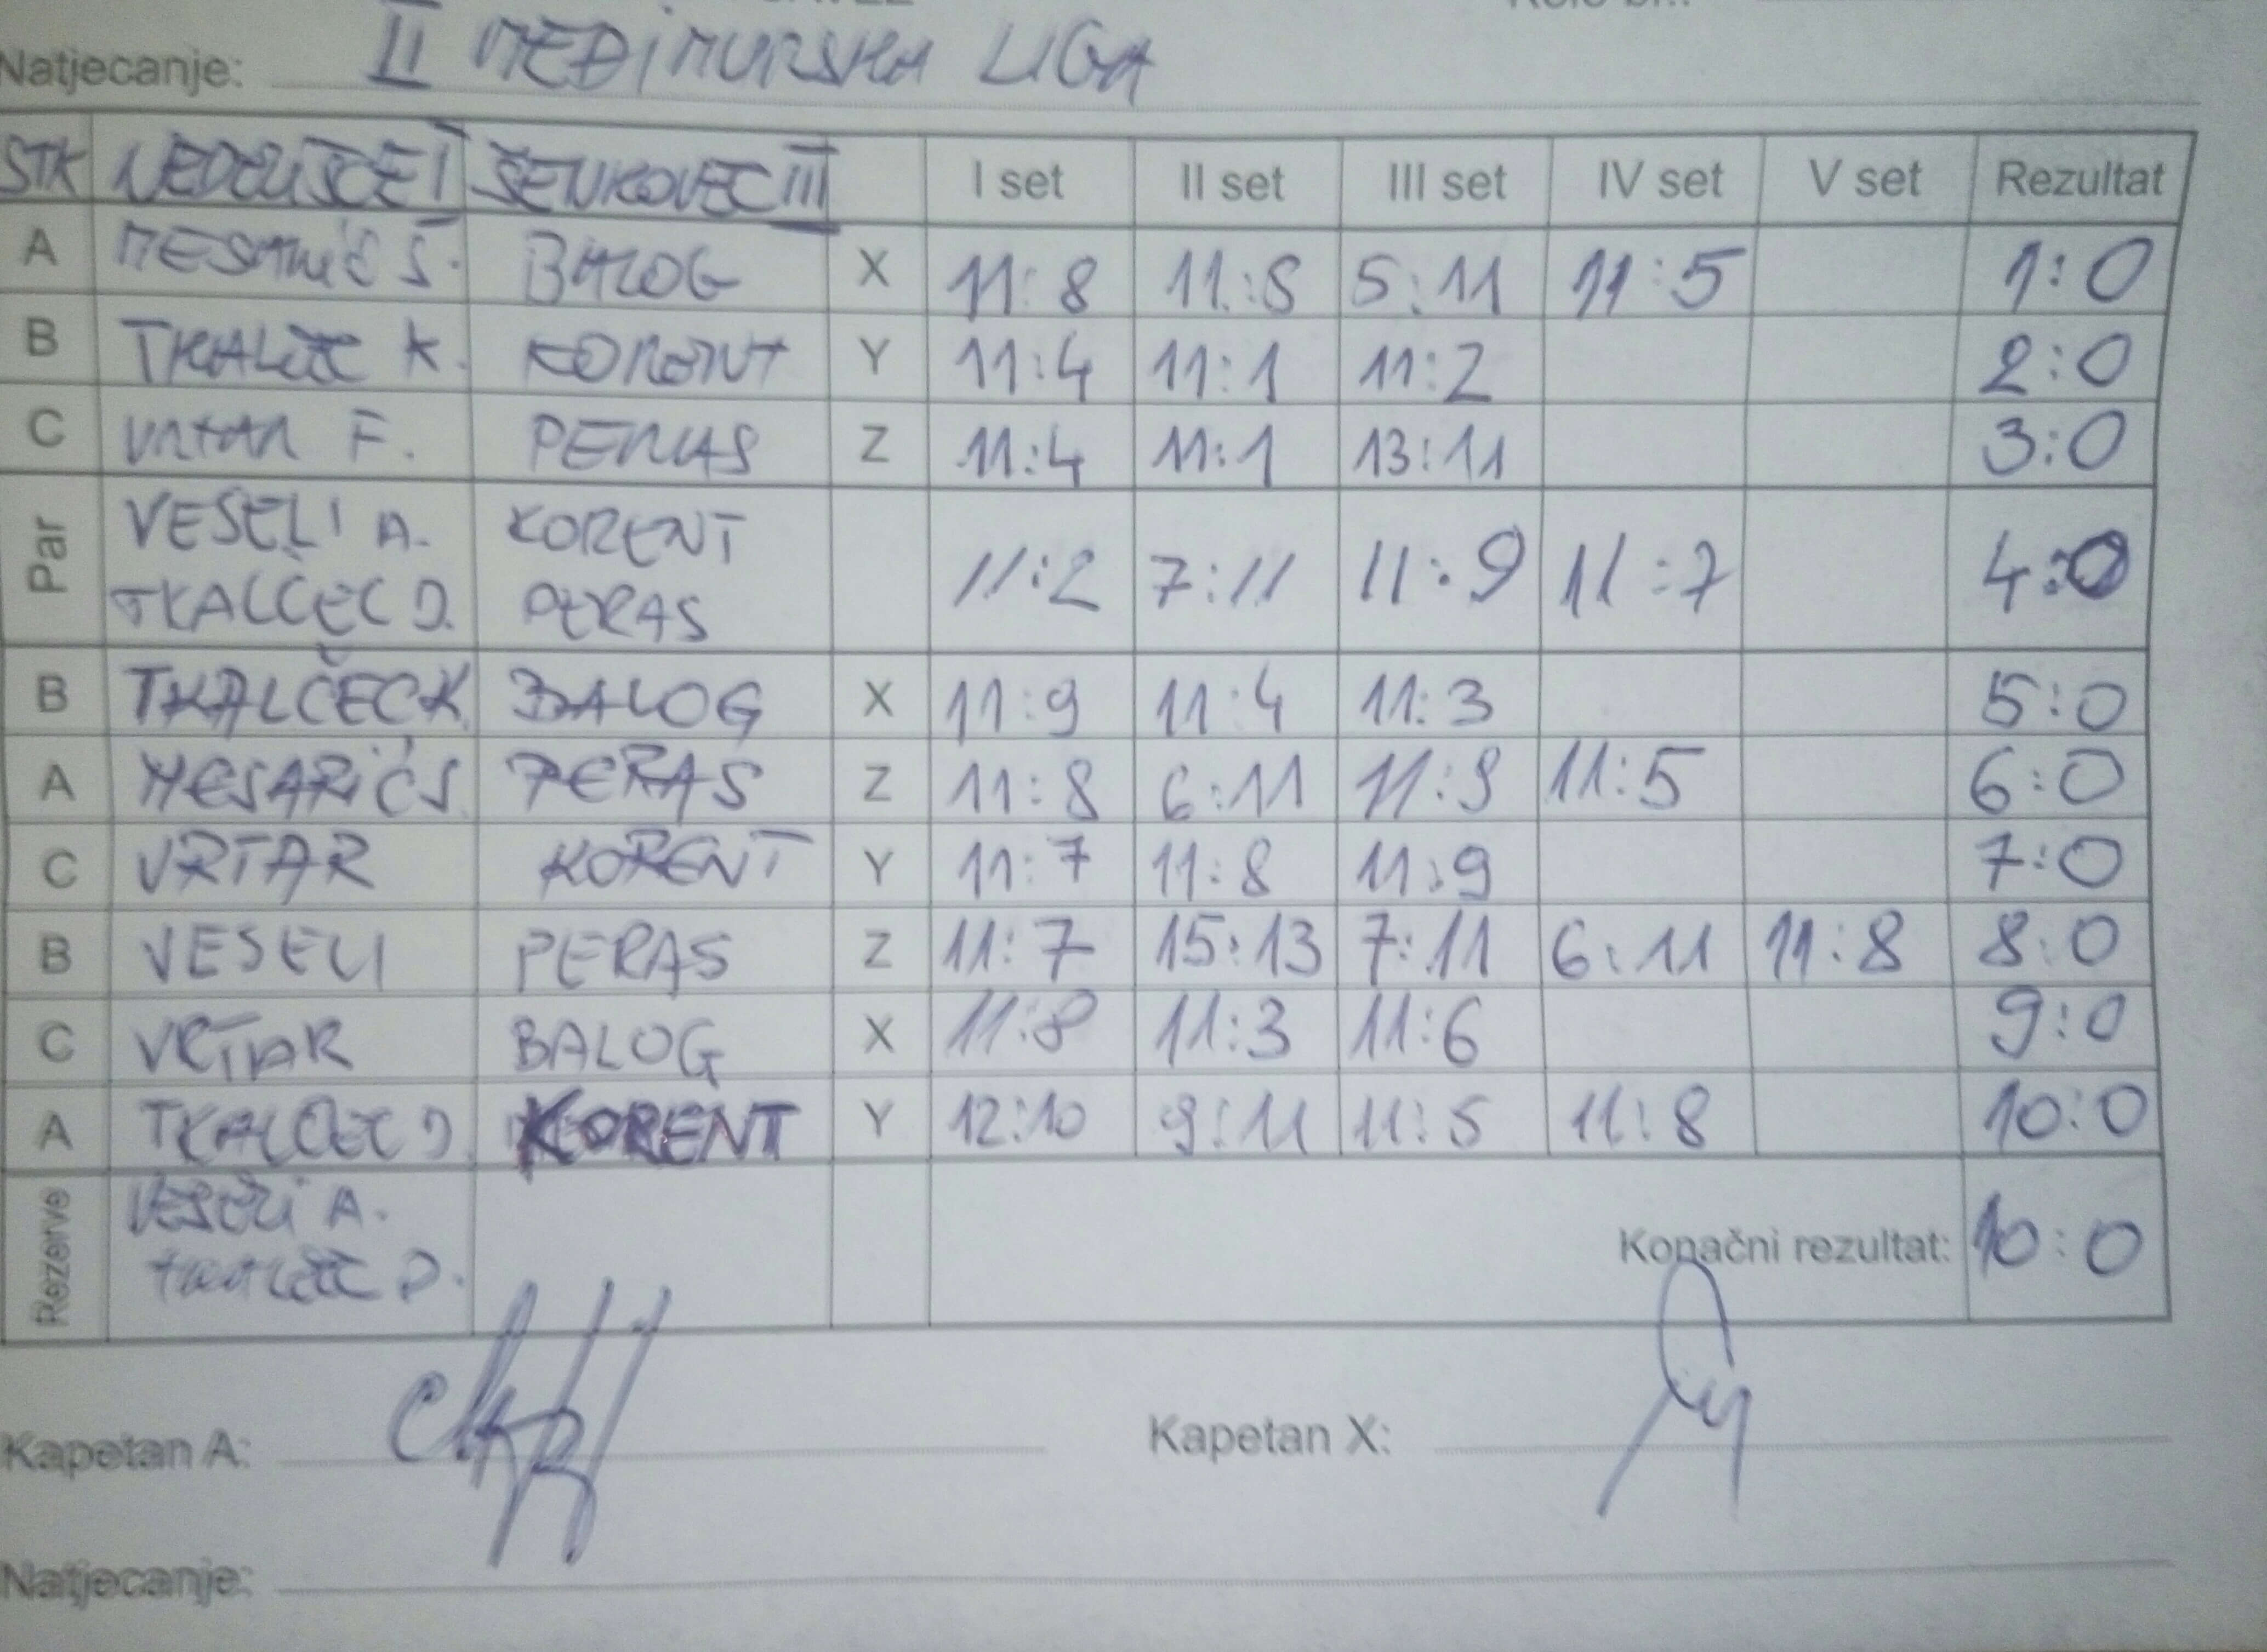 Natjecanje: II MEĐIMURSKA LIGA
STK NEDELIŠĆE I ŠENKOVEC III I set II set III set IV set V set Rezultat
A MESARIĆ S. BALOG X 11:8 11:8 5:11 11:5 1:0
B TKALČEC K. KORENT Y 11:4 11:1 11:2 2:0
C VRTAR F. PERAS Z 11:4 11:1 13:11 3:0
Par VESELI A. KORENT
TKALČEC D. PERAS 11:2 7:11 11:9 11:7 4:0
B TKALČEC K. BALOG X 11:9 11:4 11:3 5:0
A MESARIĆ S. PERAS Z 11:8 6:11 11:9 11:5 6:0
C VRTAR KORENT Y 11:7 11:8 11:9 7:0
B VESELI PERAS Z 11:7 15:13 7:11 6:11 11:8 8:0
C VRTAR BALOG X 11:8 11:3 11:6 9:0
A TKALČEC D. KORENT Y 12:10 9:11 11:5 11:8 10:0
Rezerve VESELI A.
TKALČEC D. Konačni rezultat: 10:0
Kapetan A: Kapetan X:
Natjecanje: